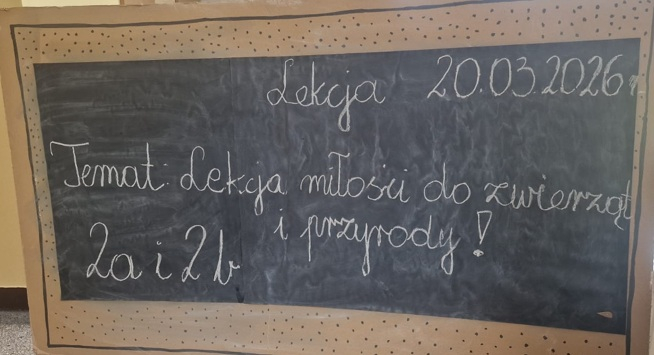 Lekcja 20.03.2026r.
Temat: Lekcja miłości do zwierząt
i przyrody!
2a i 2b